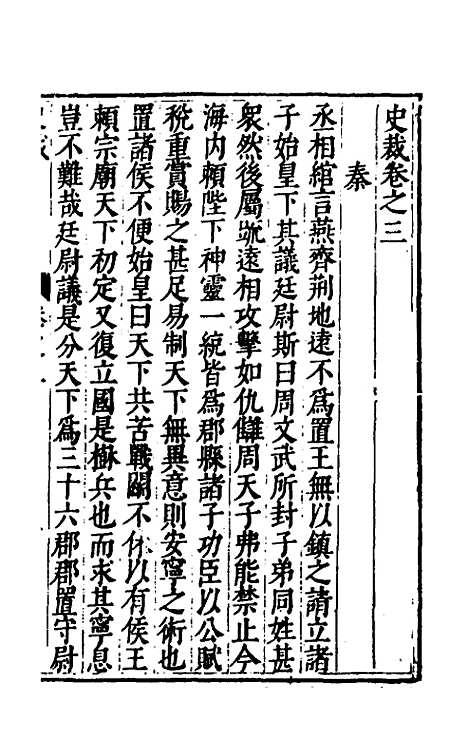 史裁卷之三
秦
丞相綰言燕齊荆地遠不爲置王無以鎮之請立諸
子始皇下其議廷尉斯曰周文武所封子弟同姓甚
衆然後屬䟽遠相攻擊如仇讎周天子弗能禁止今
海内賴陛下神靈一統皆爲郡縣諸子功臣以公賦
稅重賞賜之甚足易制天下無異意則安寧之術也
置諸侯不便始皇曰天下共苦戰鬭不休以有侯王
頼宗廟天下初定又復立國是樹兵也而求其寧息
豈不難哉廷尉議是分天下爲三十六郡郡置守尉